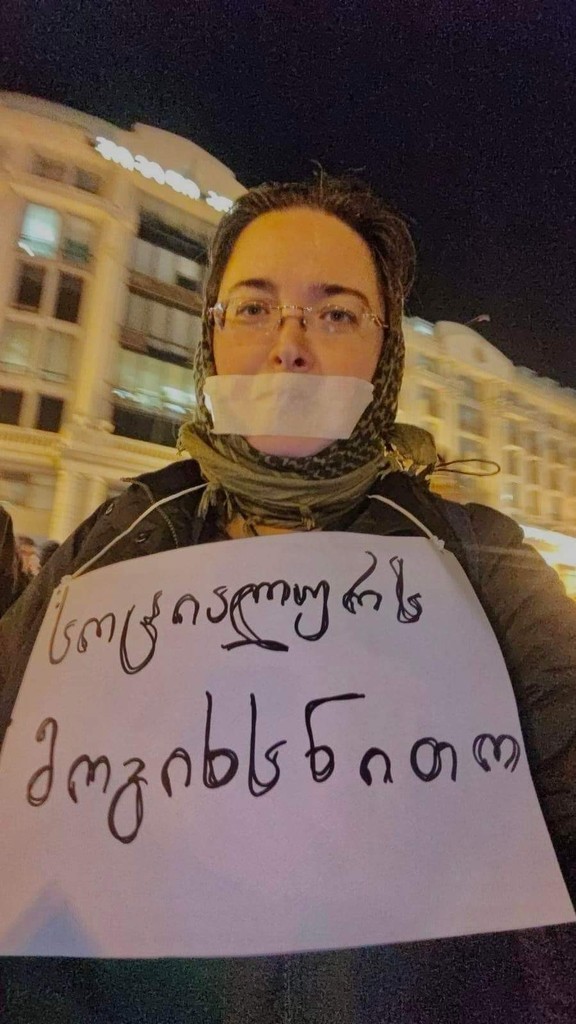 სოციალურს
მოგიხსნითო